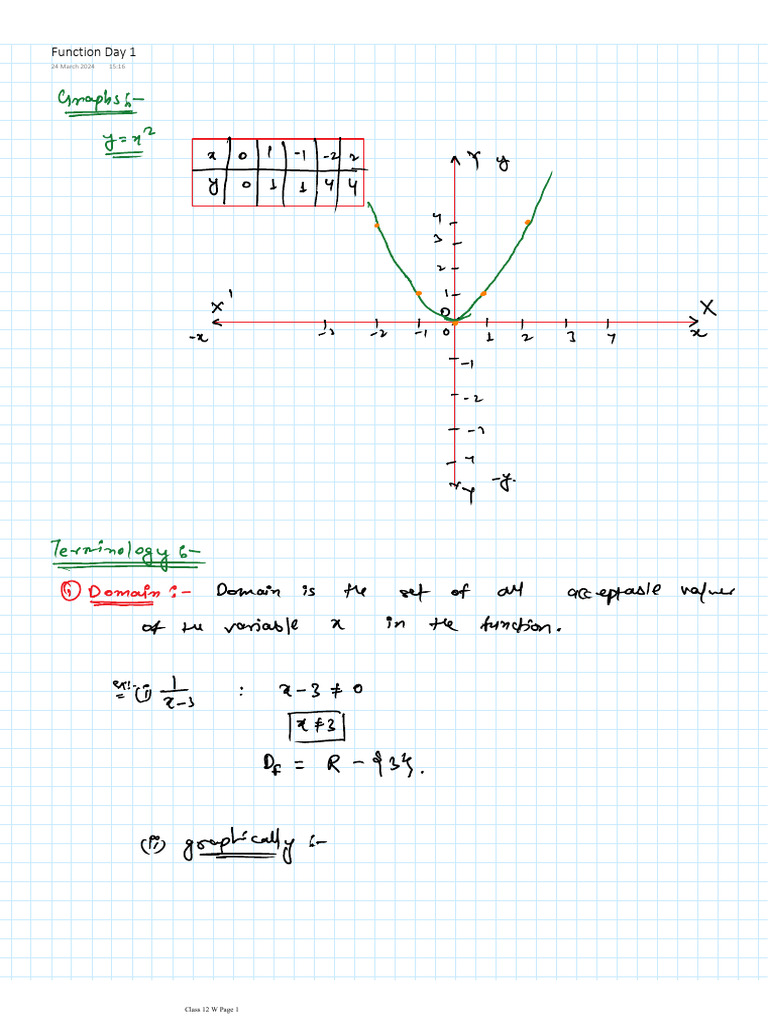 Function Day 1
24 March 2024 15:16
Graphs :-
y = x²
x 0 1 -1 -2 2
y 0 1 1 4 4
Y y
4
3
2
1
X' O X
-x -3 -2 -1 0 1 2 3 4 x
-1
-2
-3
-4
Y' -y
Terminology :-
(i) Domain :- Domain is the set of all acceptable values
of the variable x in the function.
ex:- (i) 1/(x-3) : x-3 ≠ 0
x ≠ 3
D_f = R - {3}.
(ii) graphically :-
Class 12 W Page 1